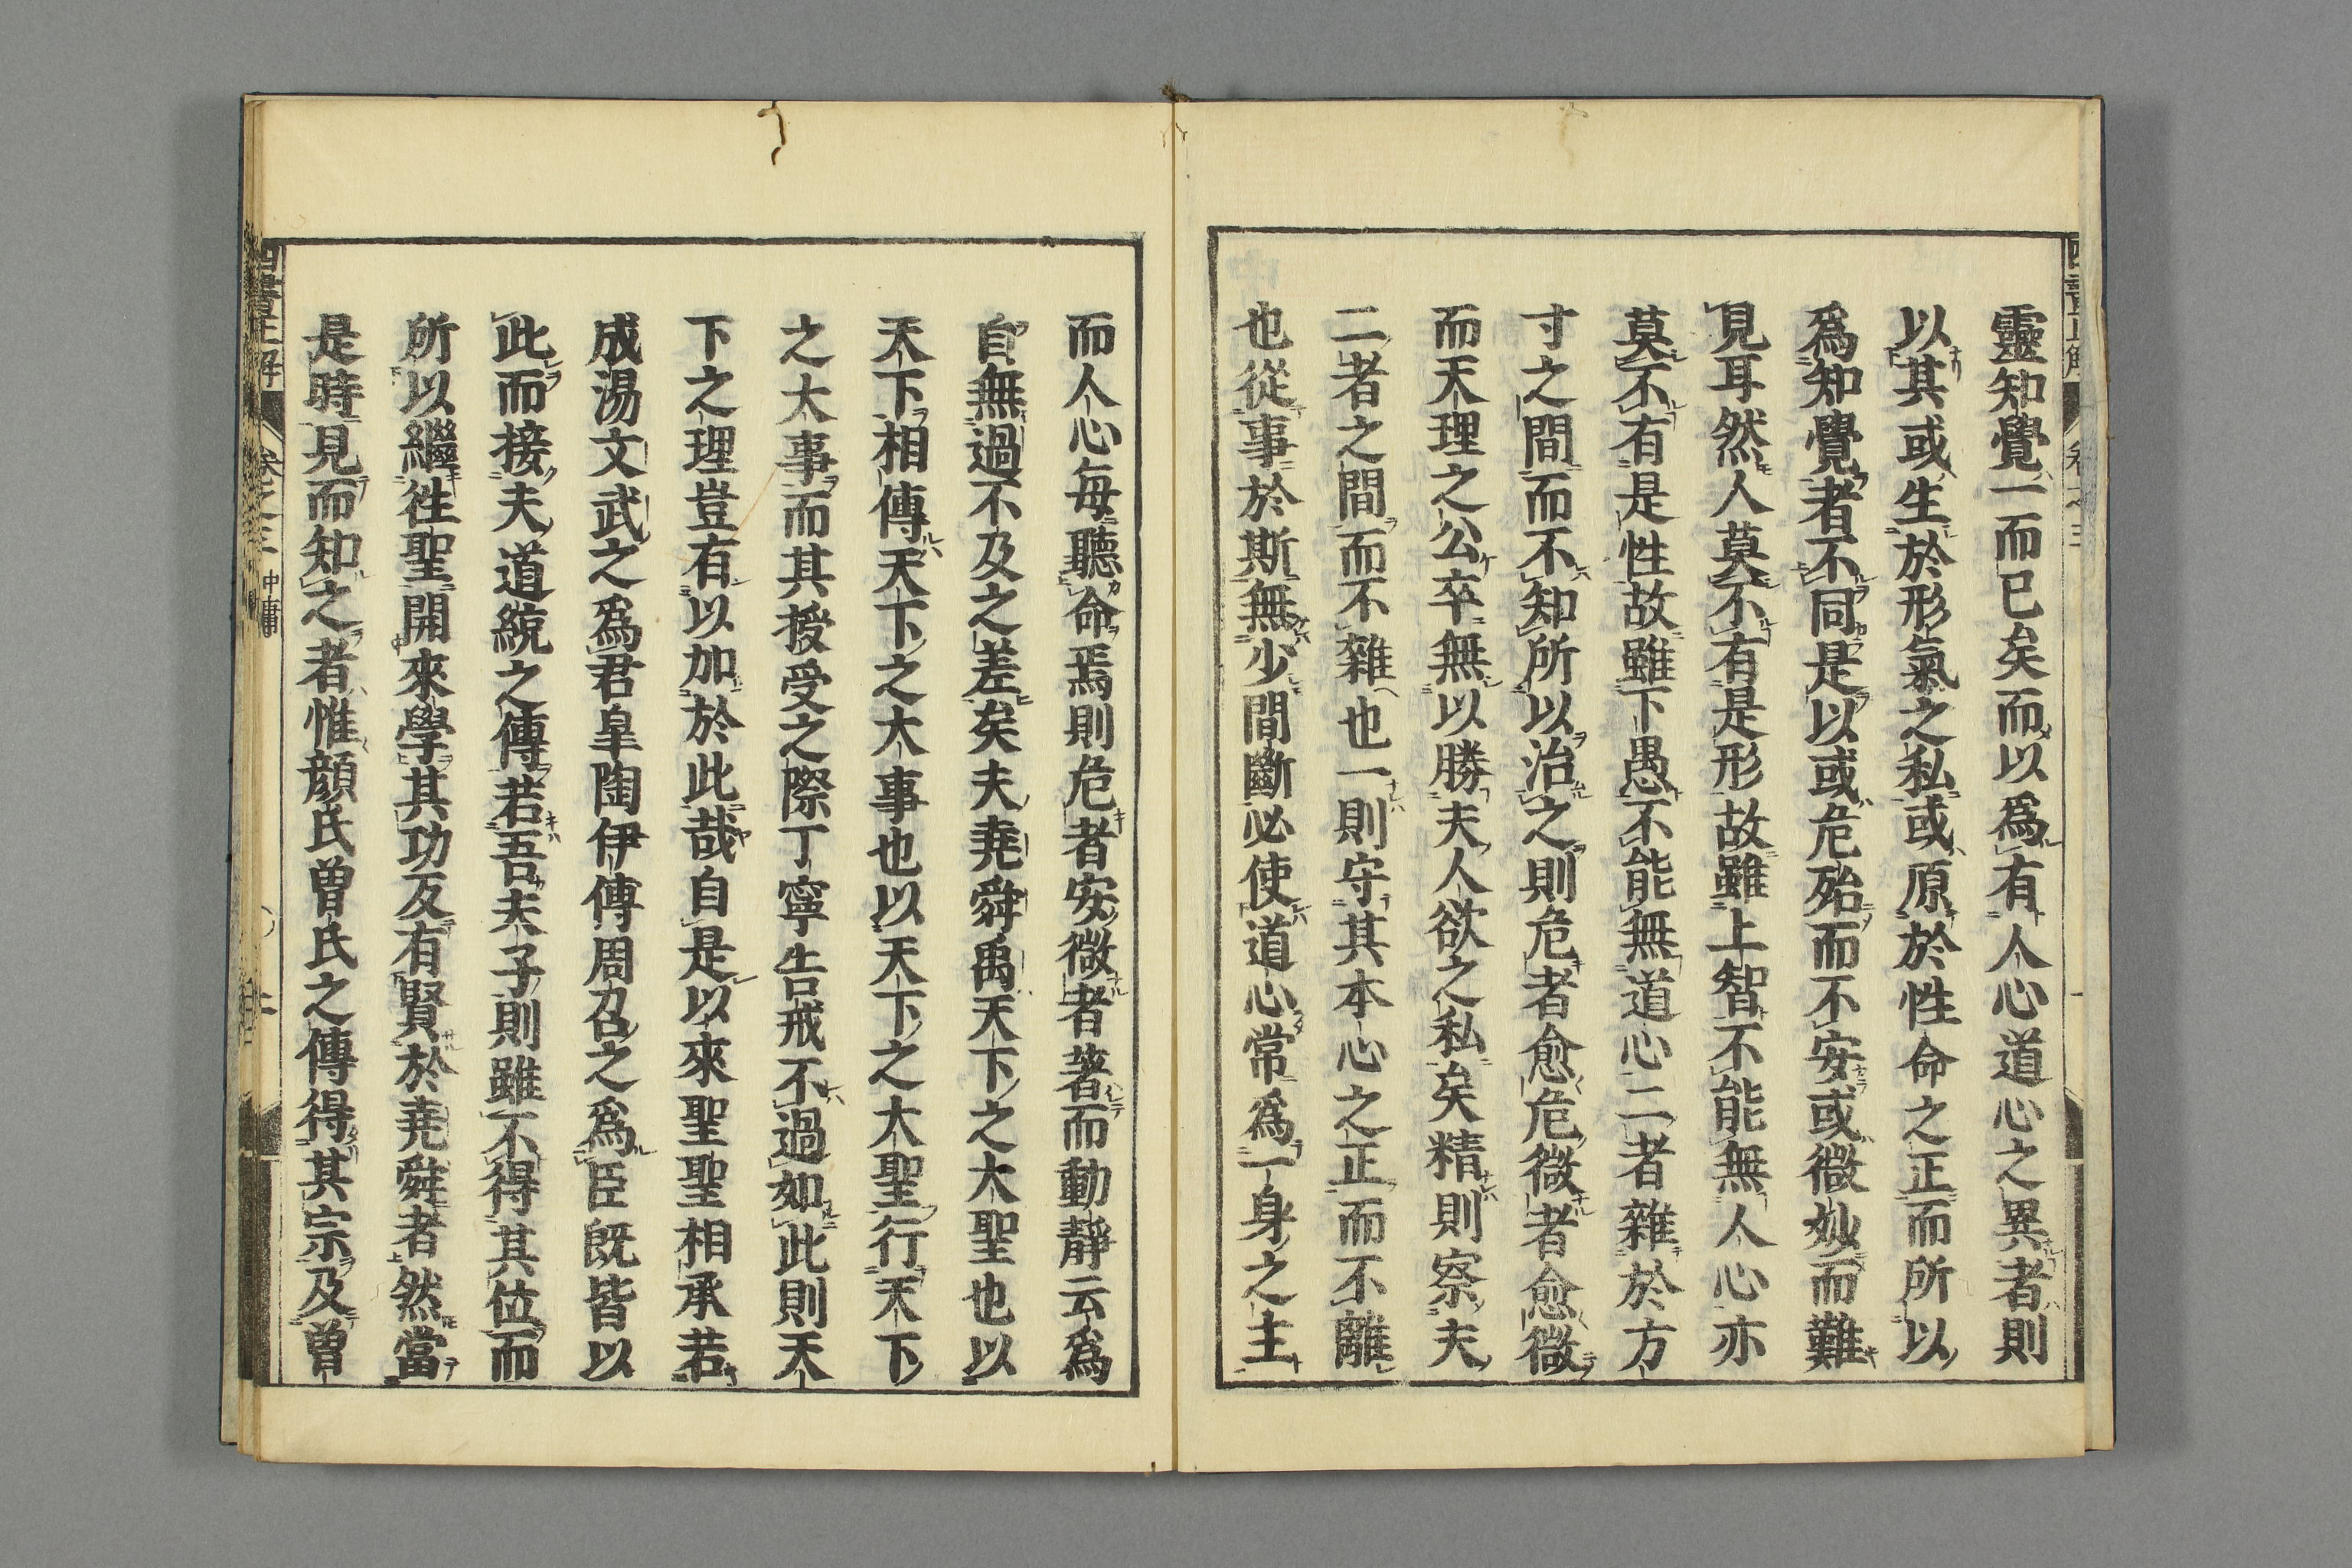 靈知覺一而已矣而以爲有人心道心之異者則
以其或生於形氣之私或原於性命之正而所以
爲知覺者不同是以或危殆而不安或微妙而難
見耳然人莫不有是形故雖上智不能無人心亦
莫不有是性故雖下愚不能無道心二者雜於方
寸之間而不知所以治之則危者愈危微者愈微
而天理之公卒無以勝夫人欲之私矣精則察夫
二者之間而不雜也一則守其本心之正而不離
也從事於斯無少間斷必使道心常爲一身之主
而人心每聽命焉則危者安微者著而動靜云爲
自無過不及之差矣夫堯舜禹天下之大聖也以
天下相傳天下之大事也以天下之大聖行天下
之大事而其授受之際丁寧告戒不過如此則天
下之理豈有以加於此哉自是以來聖聖相承若
成湯文武之爲君皐陶伊傅周召之爲臣既皆以
此而接夫道統之傳若吾夫子則雖不得其位而
所以繼徃聖開來學其功反有賢於堯舜者然當
是時見而知之者惟顏氏曽氏之傳得其宗及曽
四書正解 卷之三 中庸 二